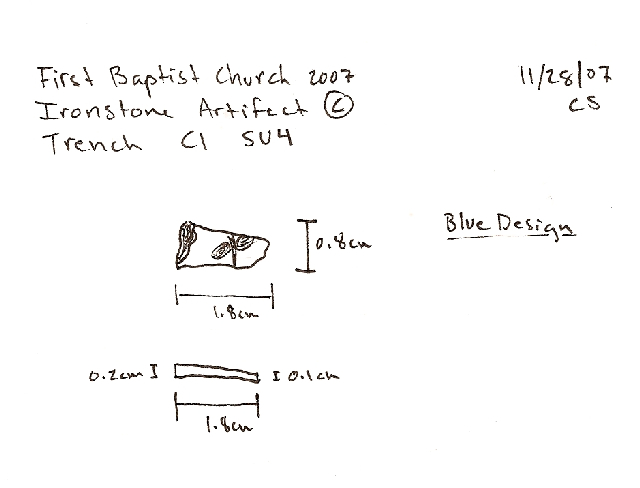 First Baptist Church 2007
Ironstone Artifact C
Trench C1 SU4
11/28/07
CS
Blue Design
0.8cm
1.8cm
0.2cm
0.1cm
1.8cm